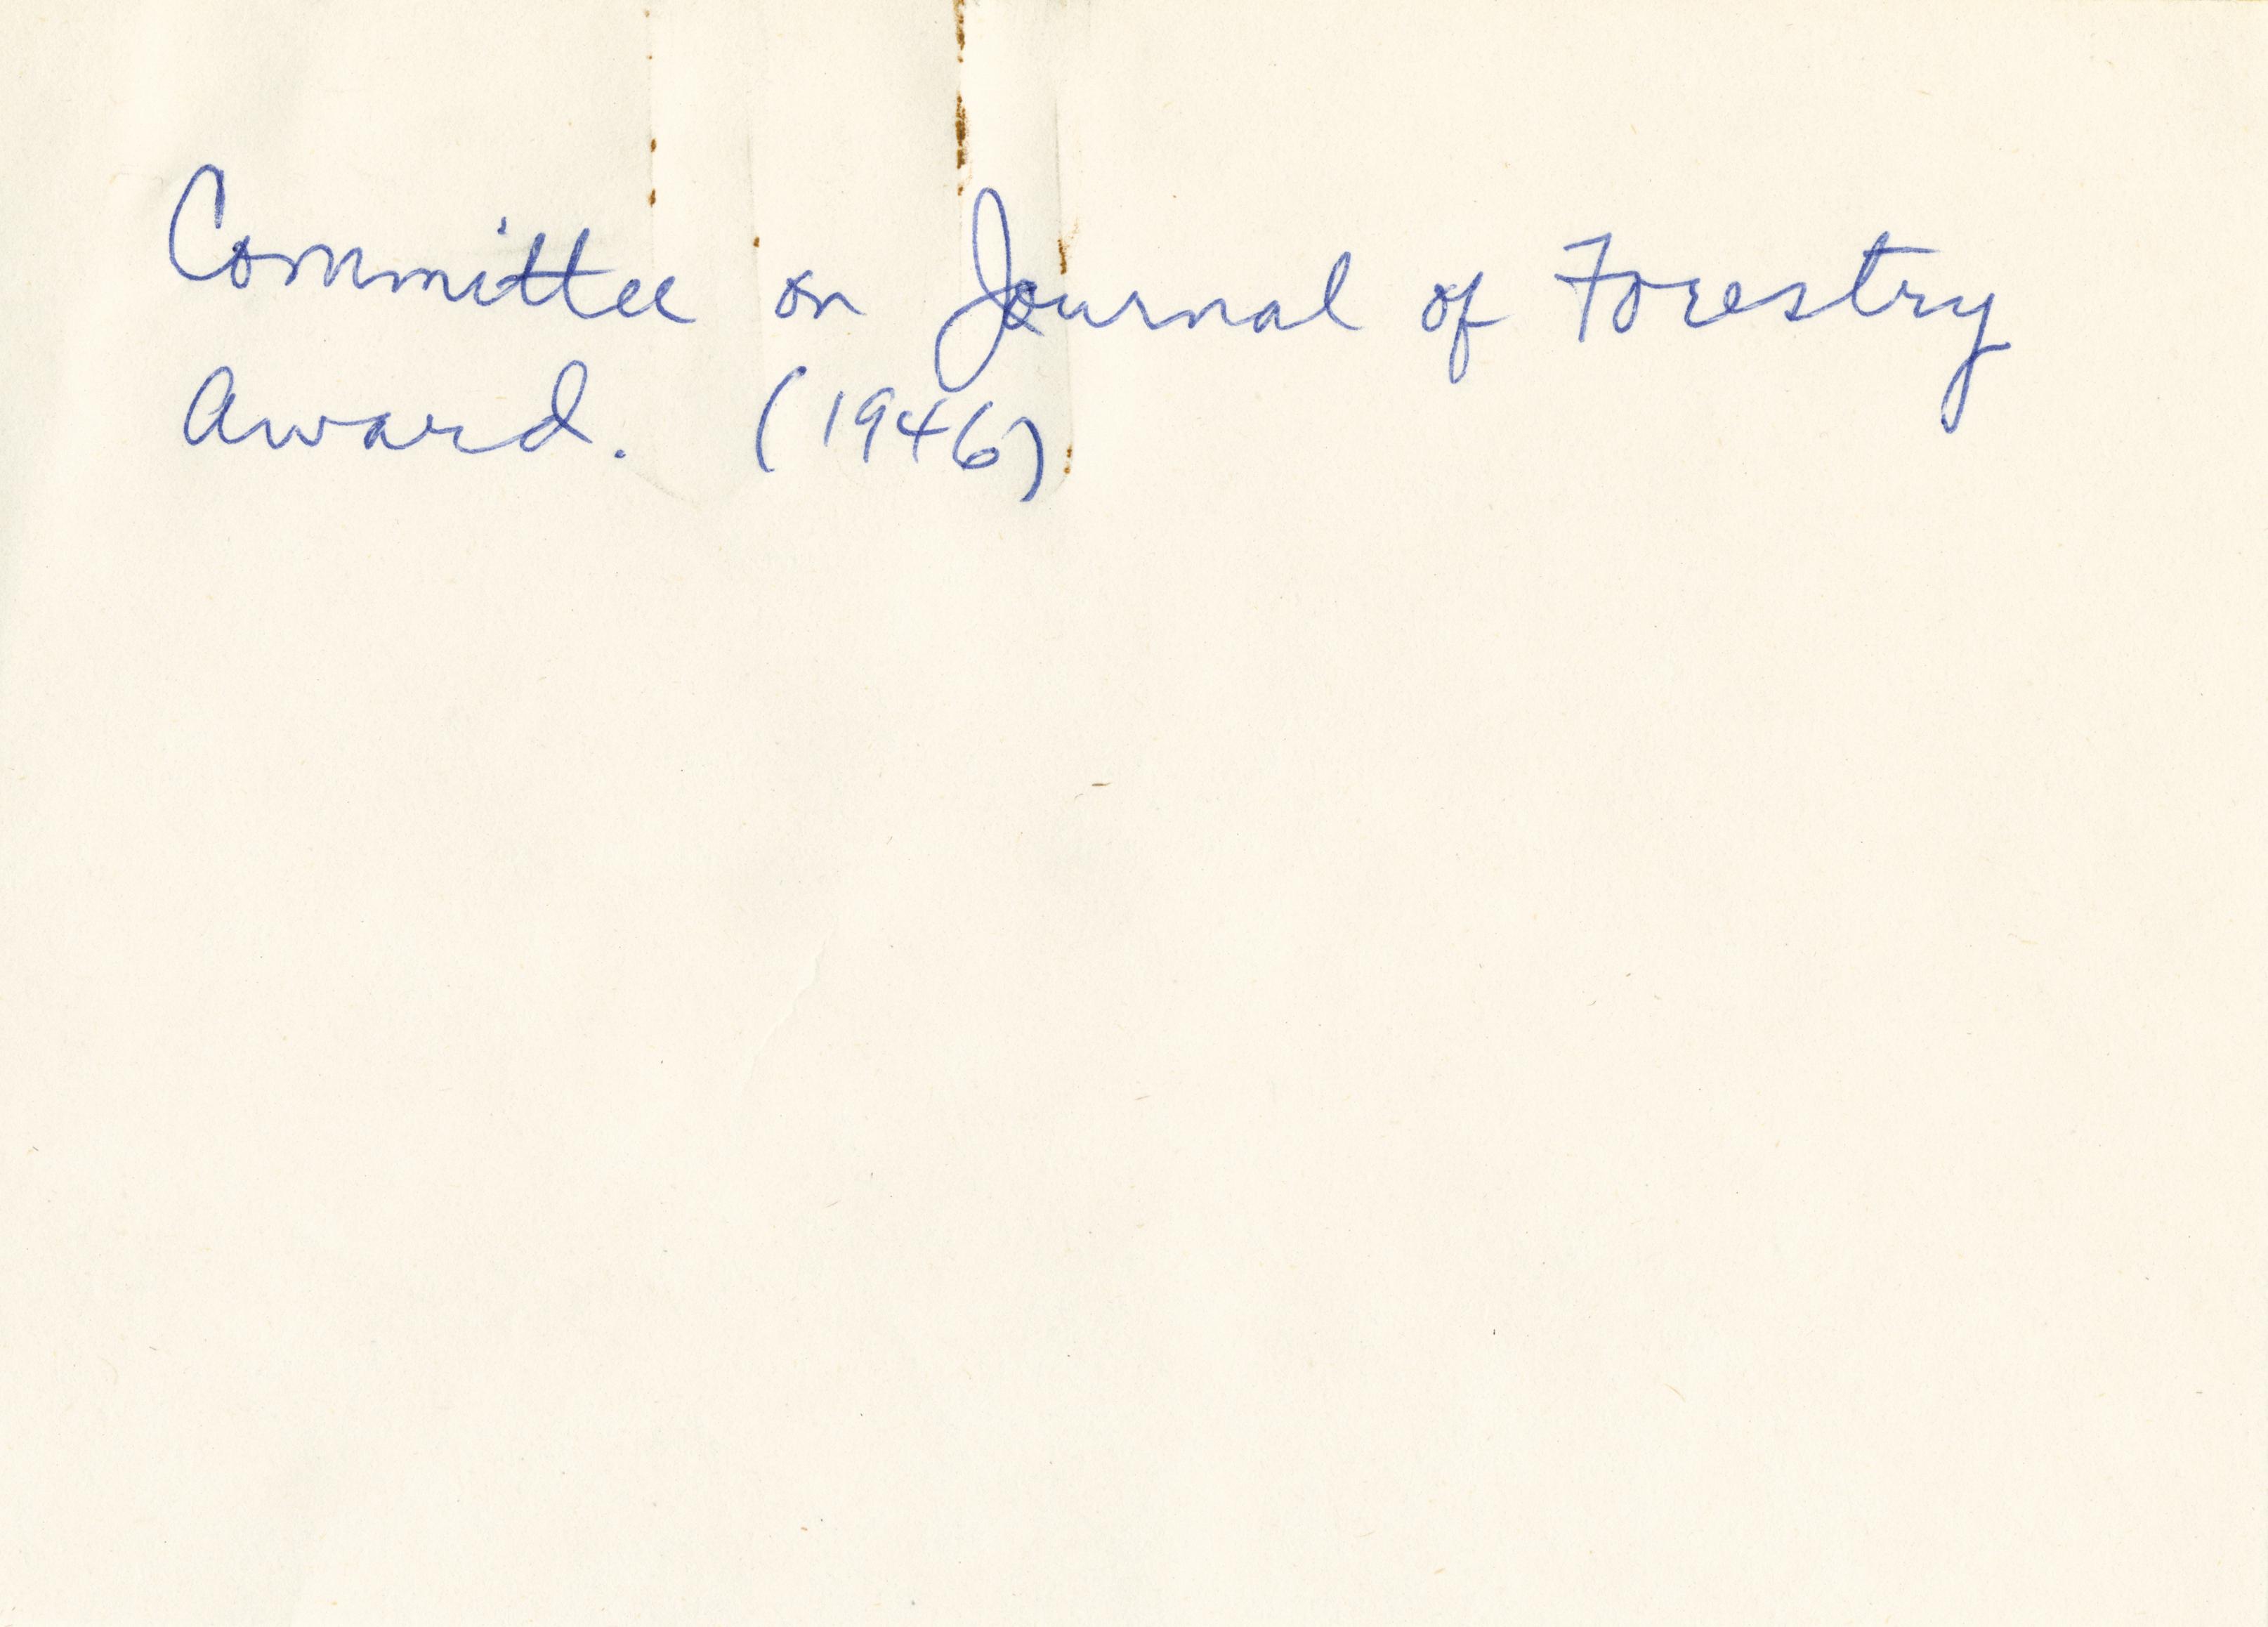 Committee on Journal of Forestry
Award. (1946)